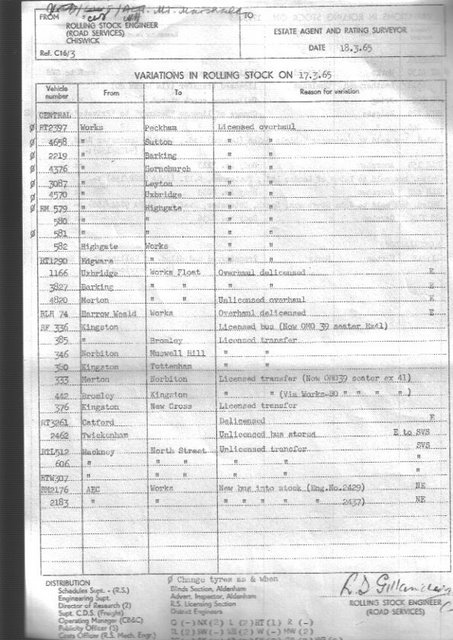 FROM
TO
ROLLING STOCK ENGINEER
(ROAD SERVICES)
CHISWICK
ESTATE AGENT AND RATING SURVEYOR
Ref. C16/3
DATE 18.3.65
VARIATIONS IN ROLLING STOCK ON 17.3.65
Vehicle number From To Reason for variation
CENTRAL
Ø RT2797 Works Peckham Licensed overhaul
Ø 4658 " Sutton " "
Ø 2219 " Barking " "
Ø 4376 " Hornchurch " "
Ø 3087 " Leyton " "
Ø 4570 " Uxbridge " "
Ø RM 579 " Highgate " "
580 " " " "
Ø 581 " " " "
582 Highgate Works " "
RT1290 Edgware " " "
1166 Uxbridge Works Float Overhaul delicensed E
3827 Barking " " " " E
4820 Merton " " Unlicensed overhaul E
RLH 74 Harrow Weald Works Overhaul delicensed E
RF 336 Kingston Licensed bus (Now OMO 39 seater Ex41)
385 " Bromley Licensed transfer
346 Norbiton Muswell Hill " "
360 Kingston Tottenham " "
333 Merton Norbiton Licensed transfer (Now OMO39 seater ex 41)
442 Bromley Kingston " " (Via Works-DO " " " ")
376 Kingston New Cross Licensed transfer
RT3261 Catford Delicensed E
2462 Twickenham Unlicenced bus stored E to SVS
RTL512 Hackney North Street Unlicensed transfer SVS
606 " " " " "
RTW307 " " " " "
RM2176 AEC Works New bus into stock (Eng.No.2429) NE
2183 " " " " " " " 2437) NE
Ø Change tyres as & when
DISTRIBUTION
Schedules Supt. - (R.S.)
Engineering Supt.
Director of Research (2)
Supt. C.D.S. (Freight)
Operating Manager (CB&C)
Publicity Officer (5)
Costs Officer (R.S. Mech. Engr.)
Blinds Section, Aldenham
Advert. Inspector, Aldenham
R.S. Licensing Section
District Engineers
ROLLING STOCK ENGINEER